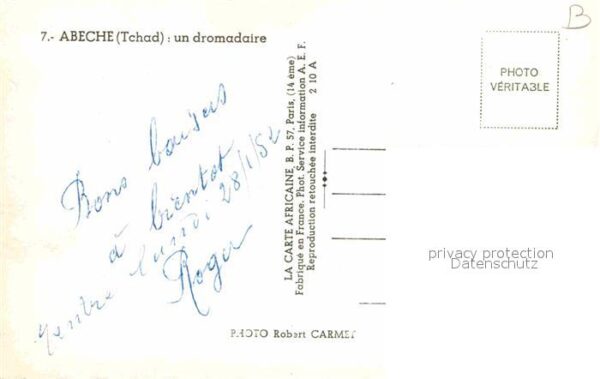 7.- ABECHE (Tchad) : un dromadaire
B
PHOTO
VÉRITABLE
Bons baisers
à bientot
rentre lundi 28/1/52
Roger
LA CARTE AFRICAINE B. P. 57, Paris, (14 ème)
Fabriqué en France. Phot. Service information A. E. F.
Reproduction retouchée interdite 2 10 A
privacy protection
Datenschutz
PHOTO Robert CARMET